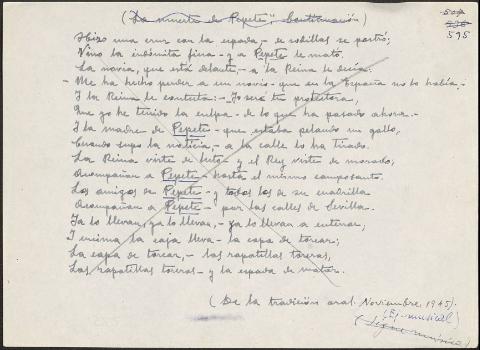 ("La muerte de Pepete", Continuación)
507
595
Hizo una cruz con la espada, - de rodillas se postró;
Vino la indómita fiera - y a Pepete le mató.
La novia, que está delante, - a la Reina le decía:
- Me ha hecho perder a un novio - que en la España no lo había.-
Y la Reina le contesta: - Yo seré tu protectora,
Que yo he tenido la culpa - de lo que ha pasado ahora.-
Y la madre de Pepete - que estaba pelando un gallo,
Cuando supo la noticia, - a la calle lo ha tirado.
La Reina viste de luto - y el Rey viste de morado;
Acompañan a Pepete - hasta el mismo camposanto.
Los amigos de Pepete - y todos los de su cuadrilla
Acompañan a Pepete - por las calles de Sevilla.
Ya lo llevan, ya lo llevan, - ya lo llevan a enterrar,
Y encima la caja lleva - la capa de torear;
La capa de torear, - las zapatillas toreras,
Las zapatillas toreras - y la espada de matar.
(De la tradición oral. Noviembre, 1945).
(Ej. musical)
(Sigue música)